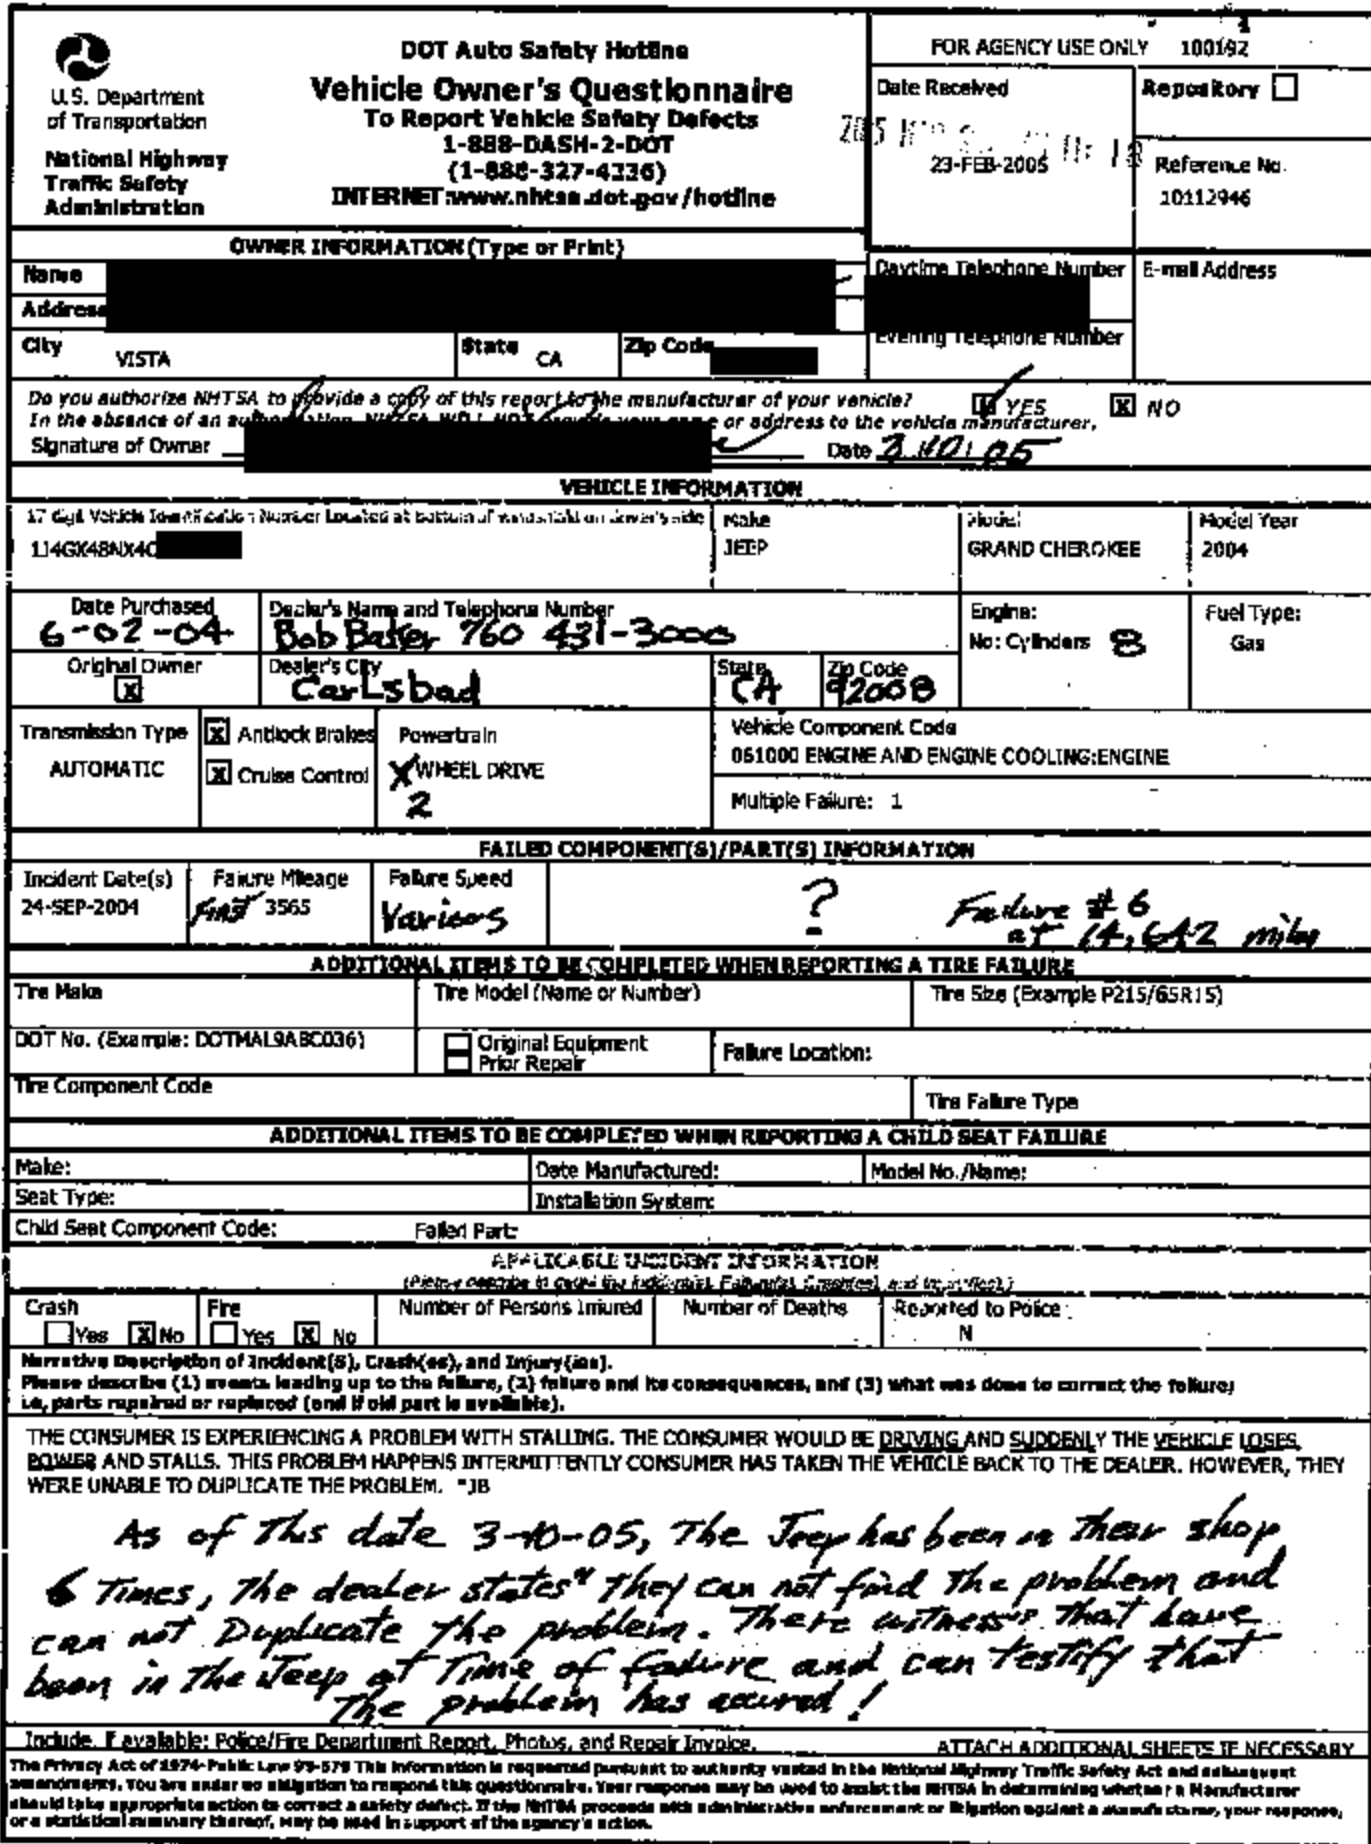 DOT Auto Safety Hotline
Vehicle Owner's Questionnaire
To Report Vehicle Safety Defects
1-888-DASH-2-DOT
(1-888-327-4236)
INTERNET:www.nhtsa.dot.gov/hotline
U.S. Department
of Transportation
National Highway
Traffic Safety
Administration
FOR AGENCY USE ONLY 100192
Date Received
23-FEB-2005
Repository
Reference No.
10112946
OWNER INFORMATION (Type or Print)
Name
Address
Daytime Telephone Number
E-mail Address
City VISTA
State CA
Zip Code
Evening Telephone Number
Do you authorize NHTSA to provide a copy of this report to the manufacturer of your vehicle? YES X NO
In the absence of an authorization, NHTSA WILL NOT provide your name or address to the vehicle manufacturer.
Signature of Owner Date 3/10/05
VEHICLE INFORMATION
17 digit Vehicle Identification Number Located at bottom of windshield on driver's side
1J4GX48NX4C
Make
JEEP
Model
GRAND CHEROKEE
Model Year
2004
Date Purchased
6-02-04
Dealer's Name and Telephone Number
Bob Baker 760 431-3000
Engine:
No: Cylinders 8
Fuel Type:
Gas
Original Owner
X
Dealer's City
Carlsbad
State
CA
Zip Code
92008
Transmission Type
AUTOMATIC
X Antilock Brakes
X Cruise Control
Powertrain
X WHEEL DRIVE
2
Vehicle Component Code
061000 ENGINE AND ENGINE COOLING:ENGINE
Multiple Failure: 1
FAILED COMPONENT(S)/PART(S) INFORMATION
Incident Date(s)
24-SEP-2004
Failure Mileage
First 3565
Failure Speed
Various
?
Failure # 6
at 14,642 miles
ADDITIONAL ITEMS TO BE COMPLETED WHEN REPORTING A TIRE FAILURE
Tire Make
Tire Model (Name or Number)
Tire Size (Example P215/65R15)
DOT No. (Example: DOTMAL9ABC036)
Original Equipment
Prior Repair
Failure Location:
Tire Component Code
Tire Failure Type
ADDITIONAL ITEMS TO BE COMPLETED WHEN REPORTING A CHILD SEAT FAILURE
Make:
Date Manufactured:
Model No./Name:
Seat Type:
Installation System:
Child Seat Component Code:
Failed Part:
APPLICABLE INCIDENT INFORMATION
Crash
Yes X No
Fire
Yes X No
Number of Persons Injured
Number of Deaths
Reported to Police
N
Narrative Description of Incident(S), Crash(es), and Injury(ies).
Please describe (1) events leading up to the failure, (2) failure and its consequences, and (3) what was done to correct the failure;
i.e, parts repaired or replaced (and if old part is available).
THE CONSUMER IS EXPERIENCING A PROBLEM WITH STALLING. THE CONSUMER WOULD BE DRIVING AND SUDDENLY THE VEHICLE LOSES
POWER AND STALLS. THIS PROBLEM HAPPENS INTERMITTENTLY CONSUMER HAS TAKEN THE VEHICLE BACK TO THE DEALER. HOWEVER, THEY
WERE UNABLE TO DUPLICATE THE PROBLEM. *JB
As of This date 3-10-05, The Jeep has been in Their shop
6 Times, The dealer states" They can not find The problem and
can not Duplicate The problem. There witness's That have
been in The Jeep at Time of failure and can Testify that
The problem has accured!
Include, if available: Police/Fire Department Report, Photos, and Repair Invoice.
ATTACH ADDITIONAL SHEETS IF NECESSARY
The Privacy Act of 1974-Public Law 93-579 This information is requested pursuant to authority vested in the National Highway Traffic Safety Act and subsequent
amendments. You are under no obligation to respond this questionnaire. Your response may be used to assist the NHTSA in determining whether a Manufacturer
should take appropriate action to correct a safety defect. If the NHTSA proceeds with administrative enforcement or litigation against a manufacturer, your response,
or a statistical summary thereof, may be used in support of the agency's action.